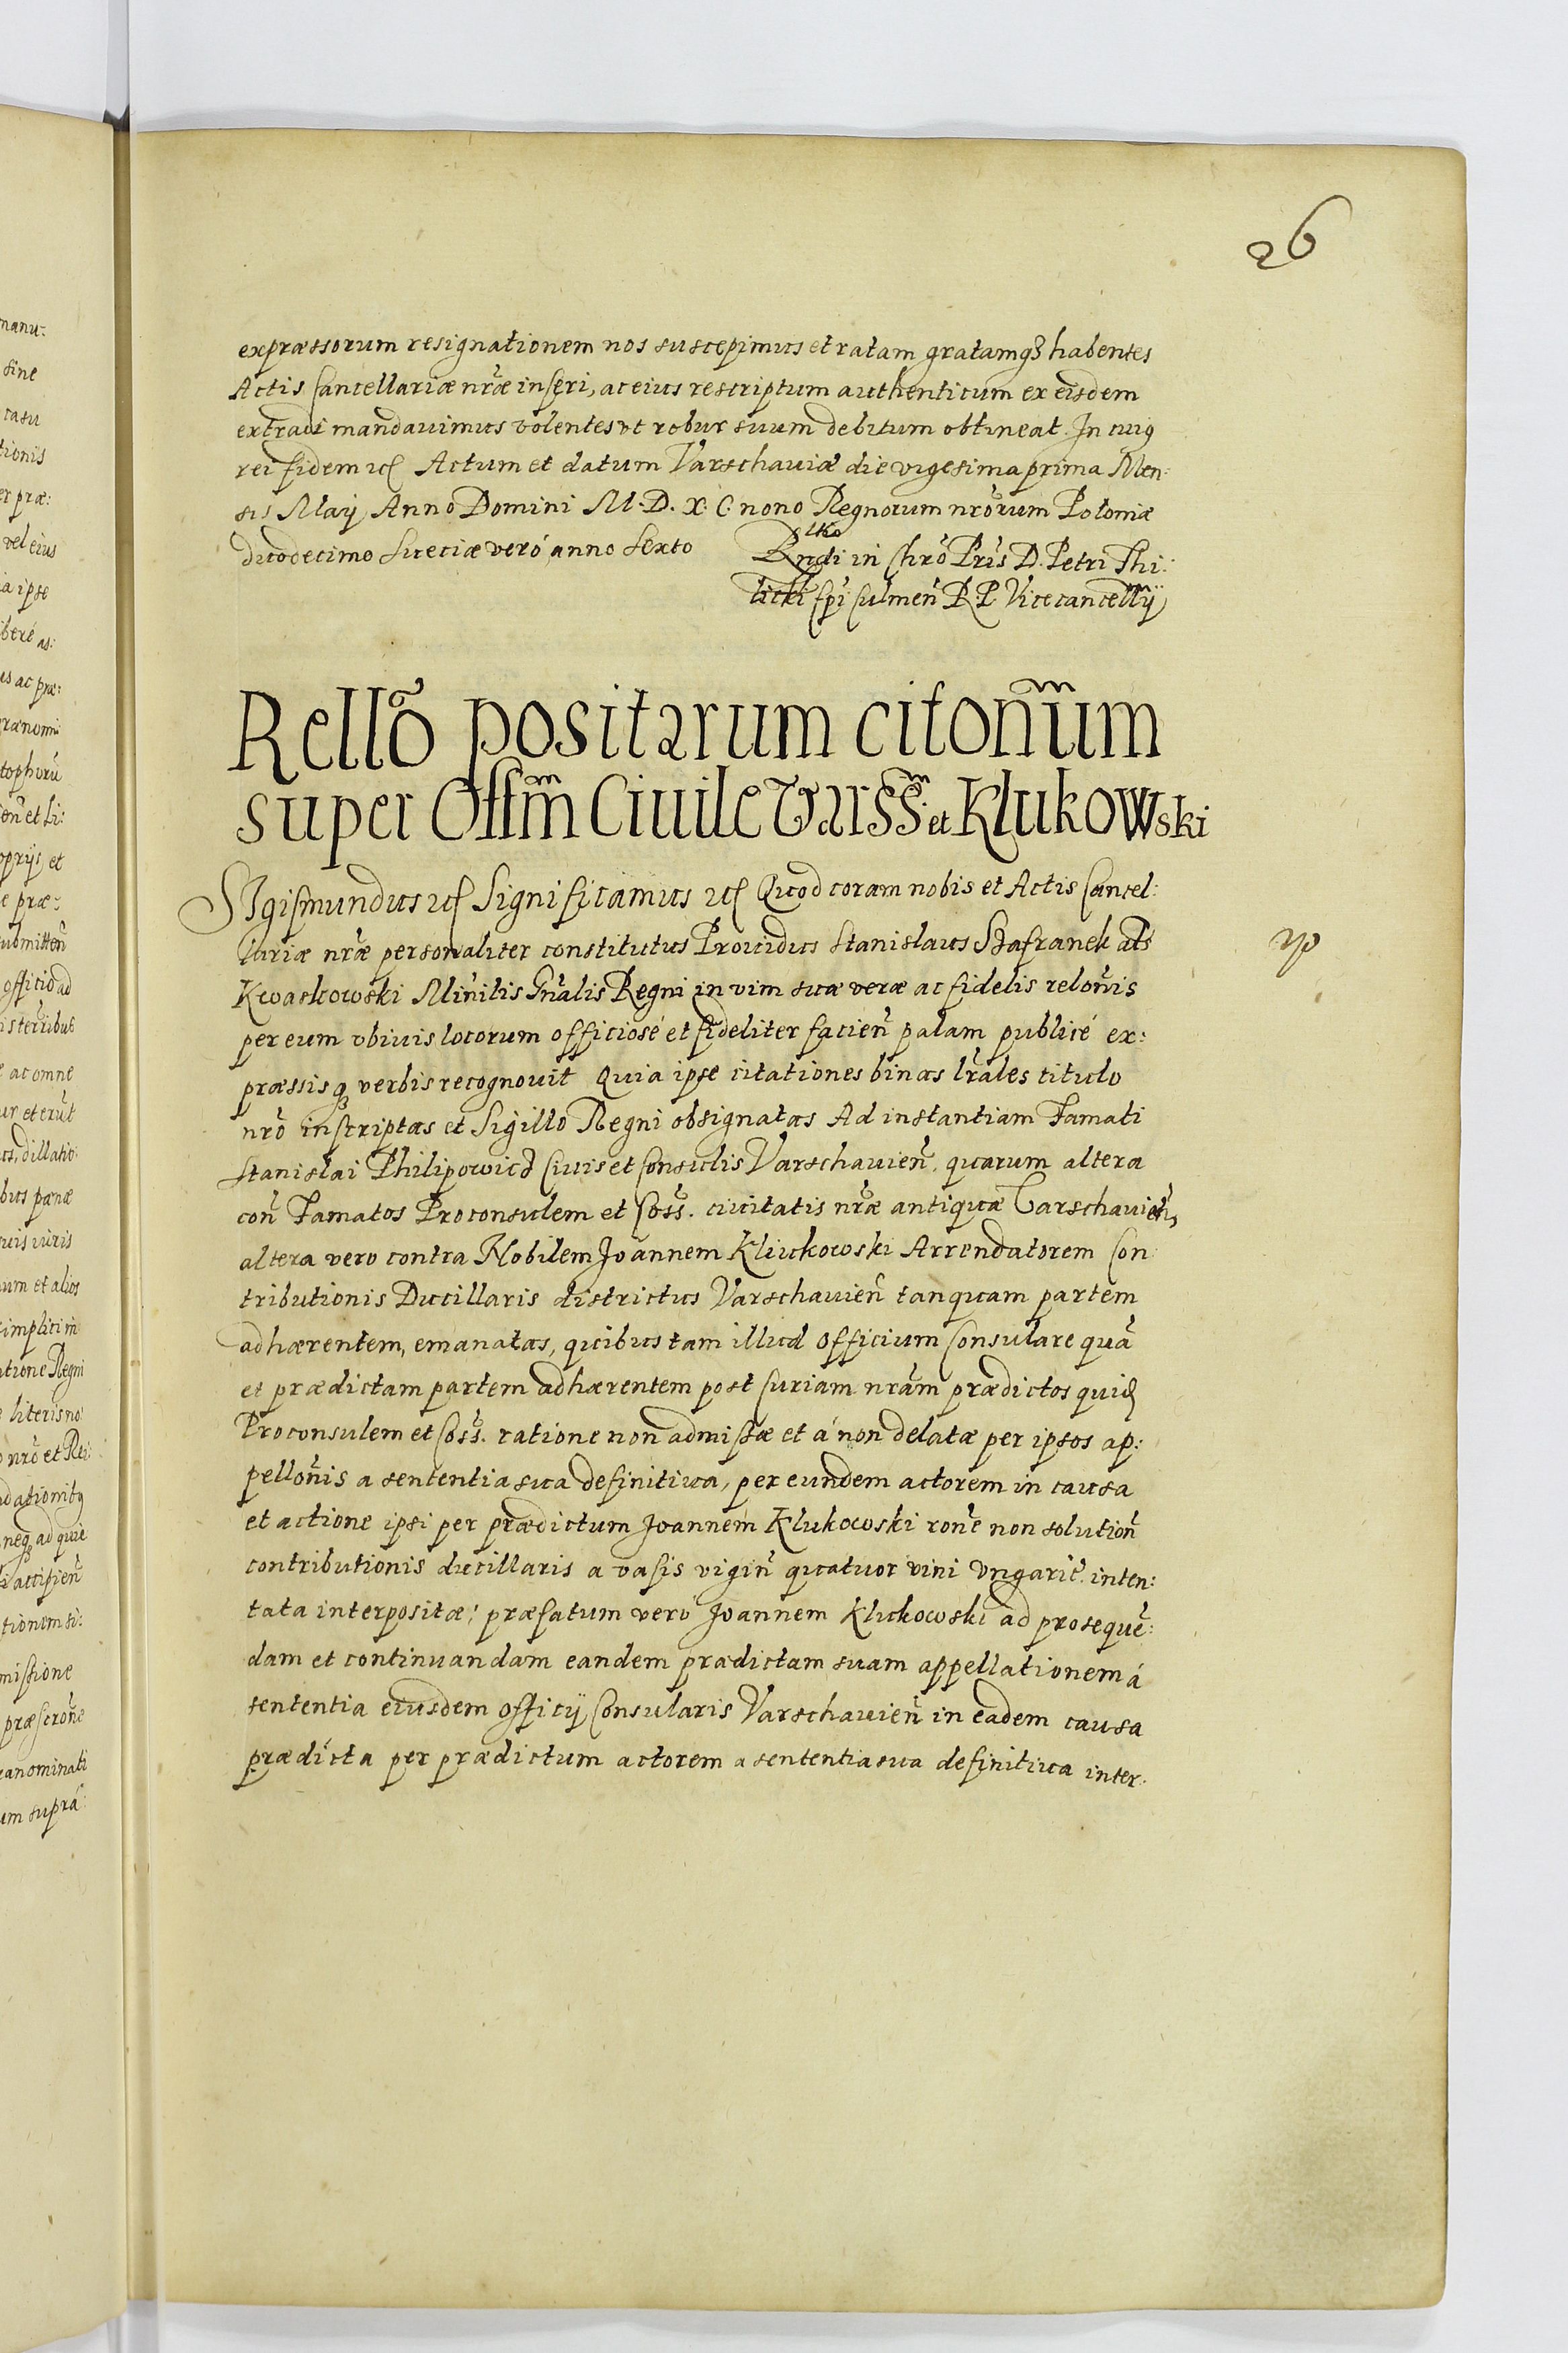 26
expræssorum resignationem nos suscepimus et ratam gratamqȝ habentes
Actis Cancellariæ nr̃æ inseri, ac eius rescriptum authenticum ex eisdem
extradi mandauimus volentes vt robur suum debitum obtineat. In cuiꝯ
rei fidem etc Actum et datum Varschauiæ die vigesima prima Men:
sis Maij Anno Domini M. D. X. C. nono Regnorum nr̃orum Poloniæ
duodecimo Sueciæ veró anno Sexto
Rndi in Chr̃o Pr̃is D. Petri Thi:
licki Ep̃i Culmen̄ R. P. Vicecancellrij
Rellõ positarum citonum
super Offm Ciuile Varss. et Klukowski
SIgismundus etc Significamus etc Quod coram nobis et Actis Cancel:
lariæ nr̃æ personaliter constitutus Prouidus Stanislaus Szafranek als
Kwaskowski Min̄ilis Gn̄alis Regni in vim suæ veræ ac fidelis relon̄is
per eum vbiuis locorum officiosé et fideliter facien̄ palam publicé ex:
præssisqȝ verbis recognouit Quia ipse citationes binas lr̃ales titulo
nr̃o inscriptas et Sigillo Regni obsignatas Ad instantiam Famati
Stanislai Philipowicz Ciuis et Consulis Varschauien̄, quarum altera
con̄ Famatos Proconsulem et Coss. ciuitatis nr̃æ antiquæ Varschauien̄,
altera vero contra Nobilem Joannem Klukowski Arrendatorem Con
tributionis Ducillaris districtus Varschauien̄ tanquam partem
adhærentem, emanatas, quibus tam illud Officium Consulare quā
et prædictam partem adhærentem post Curiam nr̃am prædictos quid
Proconsulem et Coss. ratione non admissæ et á non delatæ per ipsos ap:
pellon̄is a sententia sua definitiua, per eundem actorem in causa
et actione ipsi per prædictum Joannem Klukowski ron̄e non solution̄
contributionis ducillaris a vasis vigin̄ quatuor vini Vngaric̄. inten:
tata interpositæ; præfatum veró Joannem Klukowski ad prosequē:
dam et continuandam eandem prædictam suam appellationem á
sententia eiusdem officij Consularis Varschauien̄ in eadem causa
prædicta per prædictum actorem a sententia sua definitiua inter: